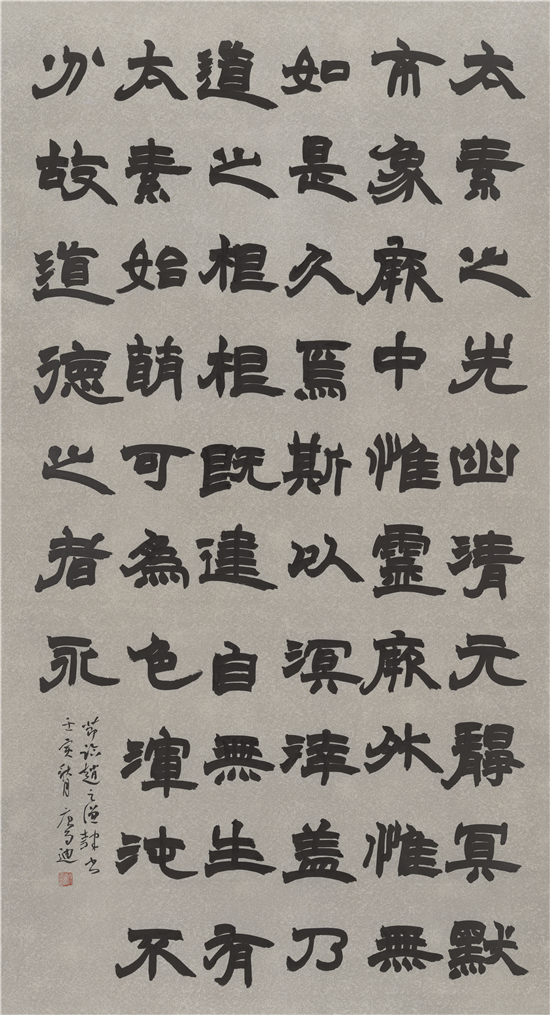 太素之先幽清元靜冥默
象厥中惟靈厥外惟無
如是久焉斯以溟涬盖乃
道之根根既建自無生有
太素始萌可為色渾沌不
分故道德之者永
節臨趙之謙隸書
壬寅秋月 迪